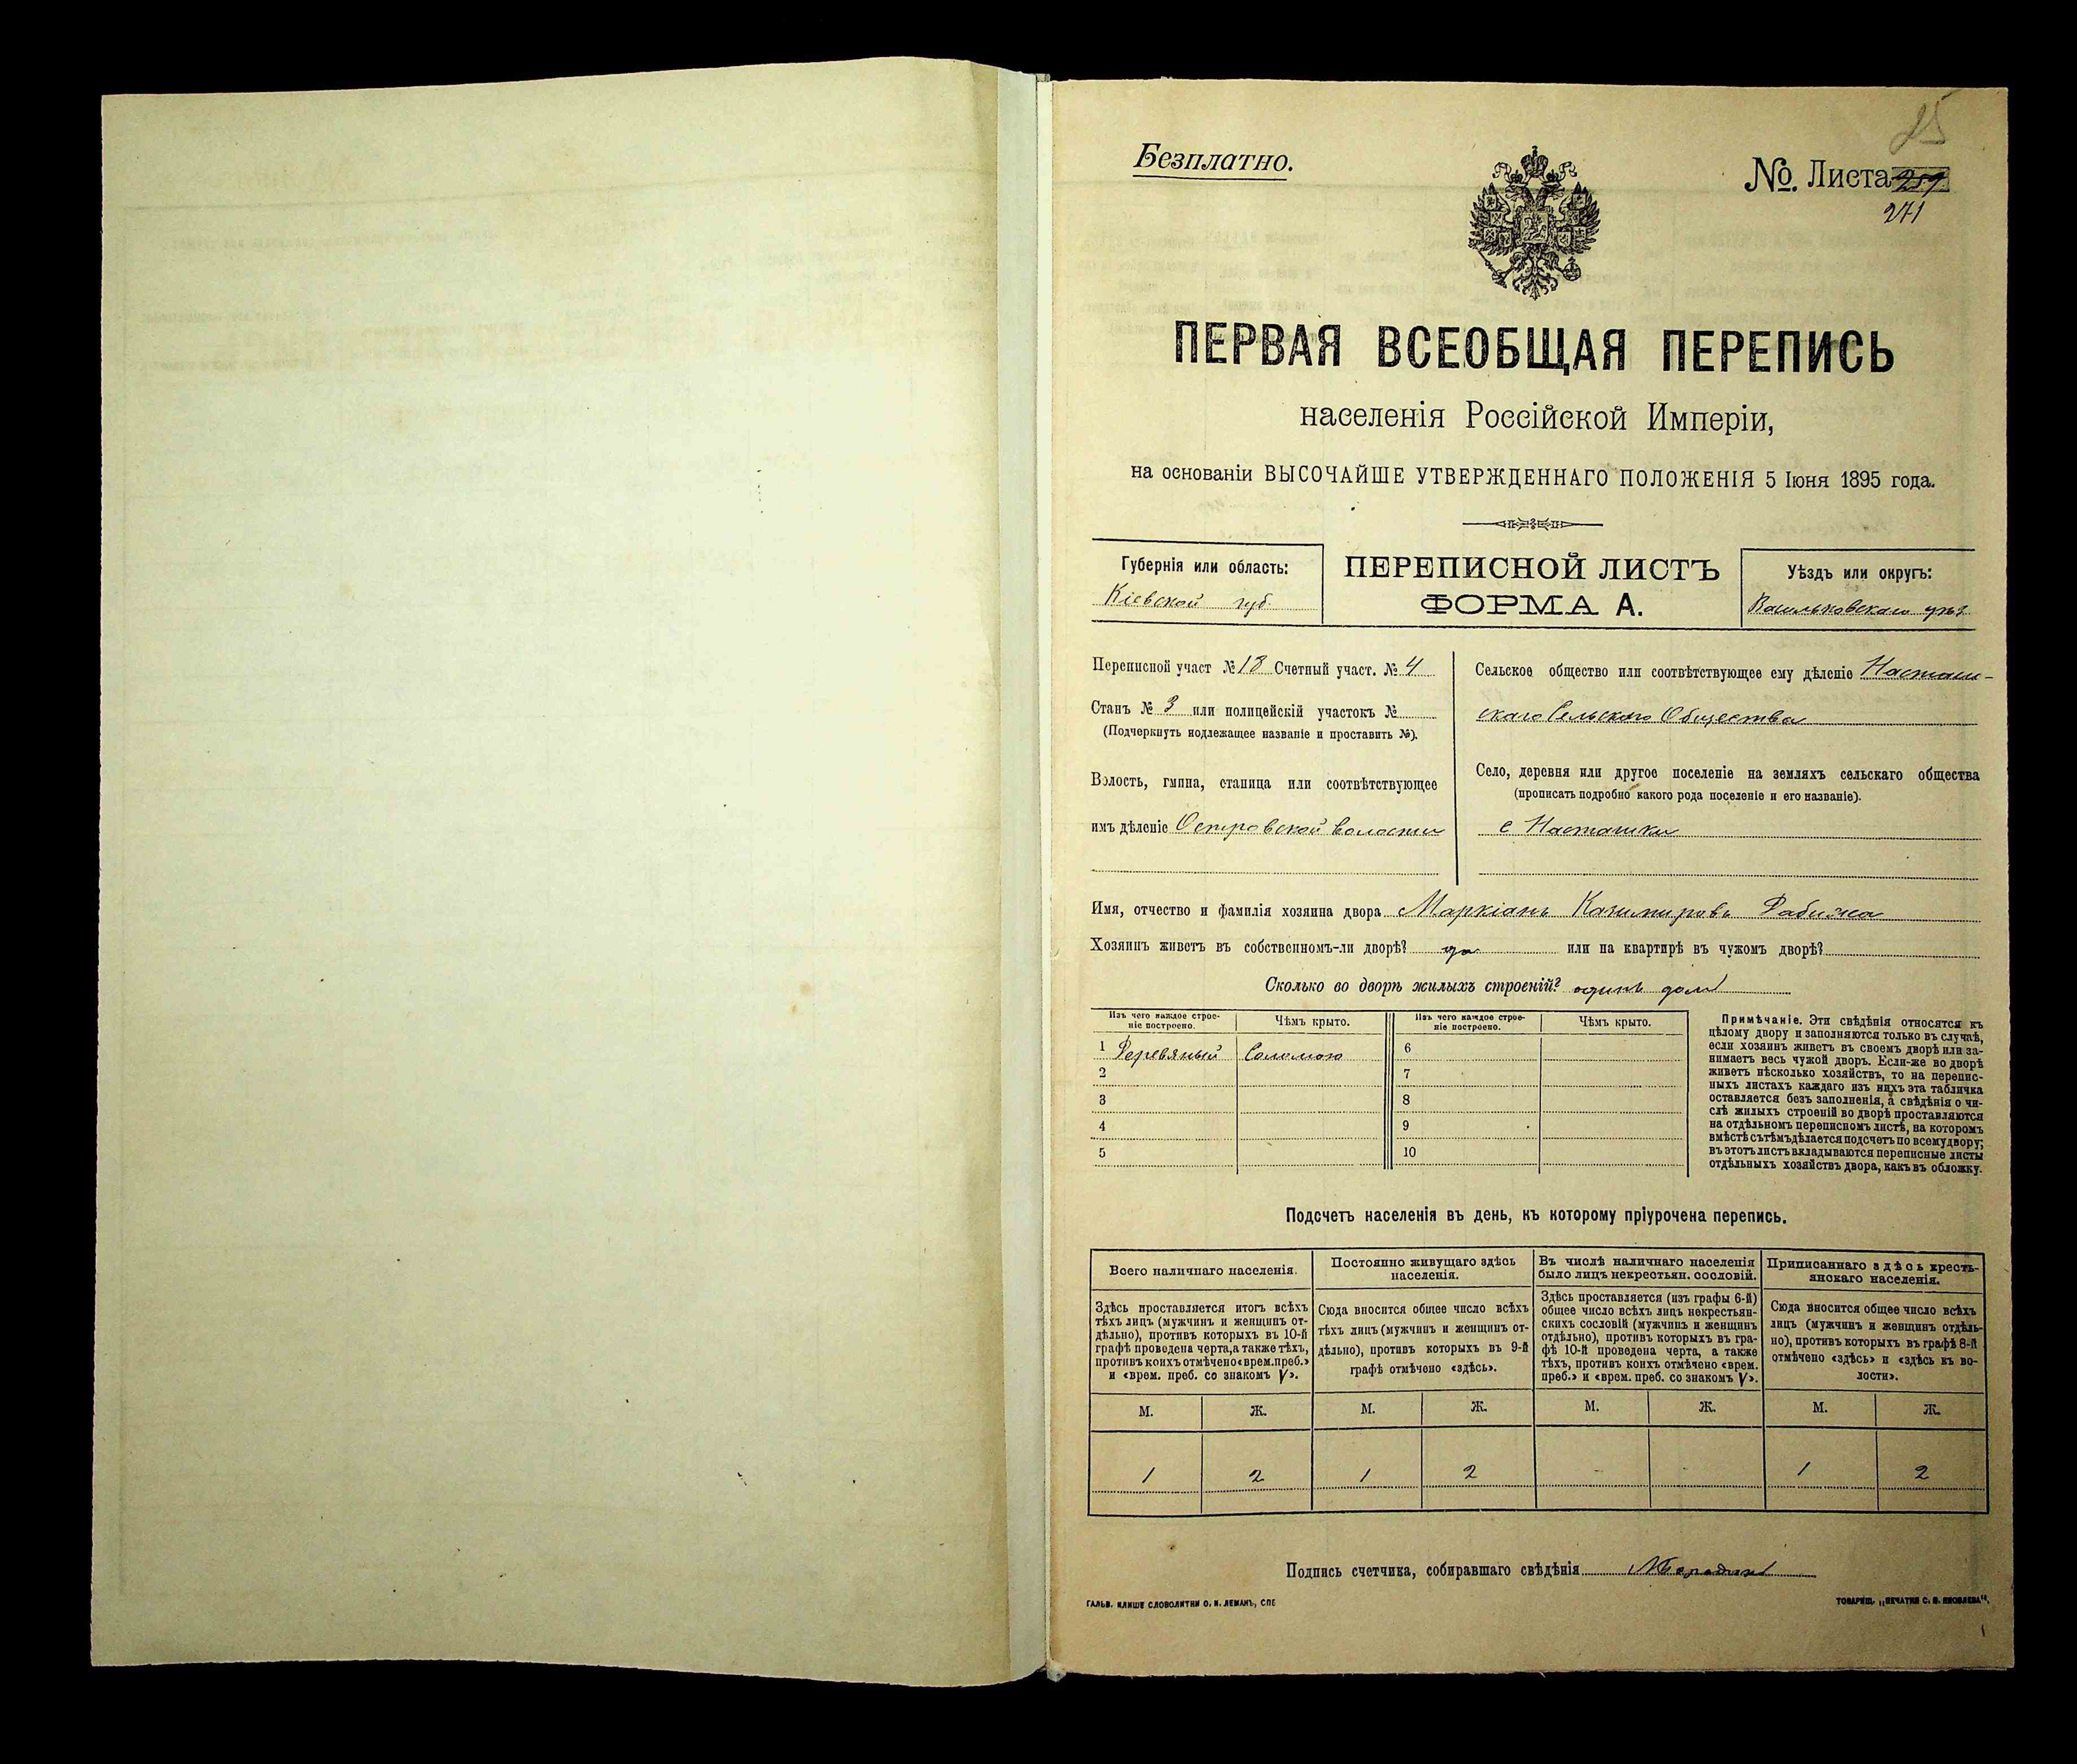 25
Безплатно.
№. Листа 259
271
ПЕРВАЯ ВСЕОБЩАЯ ПЕРЕПИСЬ
населенія Россійской Имперіи,
на основаніи ВЫСОЧАЙШЕ УТВЕРЖДЕННАГО ПОЛОЖЕНІЯ 5 Іюня 1895 года.
Губернія или область:
Кіевской губ.
ПЕРЕПИСНОЙ ЛИСТЪ
ФОРМА А.
Уѣздъ или округъ:
Васильковскаго уѣз
Переписной участ № 13 Счетный участ. № 4
Станъ № 3 или полицейскій участокъ №
(Подчеркнуть подлежащее названіе и проставить №).
Волость, гмина, станица или соотвѣтствующее
имъ дѣленіе Островской волости
Сельское общество или соотвѣтствующее ему дѣленіе Насташ-
скаго Сельскаго Общества
Село, деревня или другое поселеніе на земляхъ сельскаго общества
(прописать подробно какого рода поселеніе и его названіе).
с Насташки
Имя, отчество и фамилія хозяина двора Маркіанъ Казимировъ Рабижа
Хозяинъ живетъ въ собственномъ-ли дворѣ? да или на квартирѣ въ чужомъ дворѣ?
Сколько во дворѣ жилыхъ строеній? одинъ домъ
Изъ чего каждое строе-
ніе построено.
Чѣмъ крыто.
Изъ чего каждое строе-
ніе построено.
Чѣмъ крыто.
1 Деревяный Соломою 6
2 7
3 8
4 9
5 10
Примѣчаніе. Эти свѣдѣнія относятся къ
цѣлому двору и заполняются только въ случаѣ,
если хозяинъ живетъ въ своемъ дворѣ или за-
нимаетъ весь чужой дворъ. Если-же во дворѣ
живетъ нѣсколько хозяйствъ, то на перепис-
ныхъ листахъ каждаго изъ нихъ эта табличка
оставляется безъ заполненія, а свѣдѣнія о чи-
слѣ жилыхъ строеній во дворѣ проставляются
на отдѣльномъ переписномъ листѣ, на которомъ
вмѣстѣ съ тѣмъ дѣлается подсчетъ по всему двору;
въ этотъ листъ вкладываются переписные листы
отдѣльныхъ хозяйствъ двора, какъ въ обложку.
Подсчетъ населенія въ день, къ которому пріурочена перепись.
Всего наличнаго населенія.
Здѣсь проставляется итогъ всѣхъ
тѣхъ лицъ (мужчинъ и женщинъ от-
дѣльно), противъ которыхъ въ 10-й
графѣ проведена черта, а также тѣхъ,
противъ коихъ отмѣчено «врем. преб.»
и «врем. преб. со знакомъ V».
Постоянно живущаго здѣсь
населенія.
Сюда вносится общее число всѣхъ
тѣхъ лицъ (мужчинъ и женщинъ от-
дѣльно), противъ которыхъ въ 9-й
графѣ отмѣчено «здѣсь».
Въ числѣ наличнаго населенія
было лицъ некрестьян. сословій.
Здѣсь проставляется (изъ графы 6-й)
общее число всѣхъ лицъ некрестьян-
скихъ сословій (мужчинъ и женщинъ
отдѣльно), противъ которыхъ въ гра-
фѣ 10-й проведена черта, а также
тѣхъ, противъ коихъ отмѣчено «врем.
преб.» и «врем. преб. со знакомъ V».
Приписаннаго здѣсь кресть-
янскаго населенія.
Сюда вносится общее число всѣхъ
лицъ (мужчинъ и женщинъ отдѣль-
но), противъ которыхъ въ графѣ 8-й
отмѣчено «здѣсь» и «здѣсь въ во-
лости».
М. Ж. М. Ж. М. Ж. М. Ж.
1 2 1 2 - - 1 2
Подпись счетчика, собиравшаго свѣдѣнія
ГАЛЬВ. КЛИШЕ СЛОВОЛИТНИ О. И. ЛЕМАНЪ, СПБ
ТОВАРИЩ. „ПЕЧАТНЯ С. П. ЯКОВЛЕВА“,